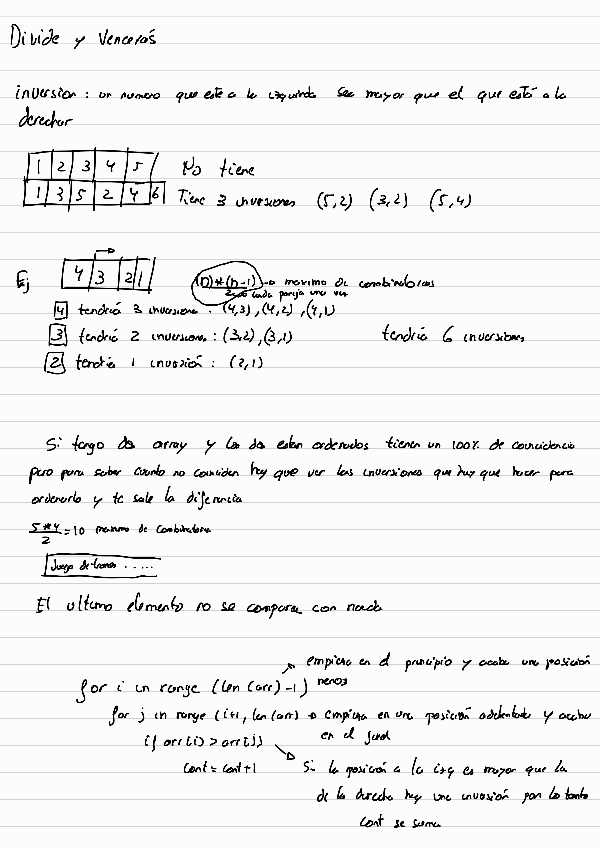 Divide y Vencerás
inversion: un numero que este a la izquierda sea mayor que el que está a la
derecha
1 2 3 4 5 No tiene
1 3 5 2 4 6 Tiene 3 inversiones (5,2) (3,2) (5,4)
Ej 4 3 2 1 (n)*(n-1) → maximo de combinaciones
2 → cada pareja una vez
4 tendría 3 inversiones: (4,3), (4,2), (4,1)
3 tendría 2 inversiones: (3,2), (3,1) tendría 6 inversiones
2 tendría 1 inversión: (2,1)
Si tengo dos array y los dos estan ordenados tienen un 100% de coincidencia
pero para saber cuanto no coinciden hay que ver las inversiones que hay que hacer para
ordenarlo y te sale la diferencia
5*4/2 = 10 maximo de combinaciones
Juego de tronos .....
El ultimo elemento no se compara con nada
empieza en el principio y acaba una posición
for i in range (len (arr) -1) menos
for j in range (i+1, len(arr) → empieza en una posición adelantada y acaba
if arr[i] > arr[j] en el final
cont = cont+1 Si la posición a la izq es mayor que la
de la derecha hay una inversión por lo tanto
cont se suma